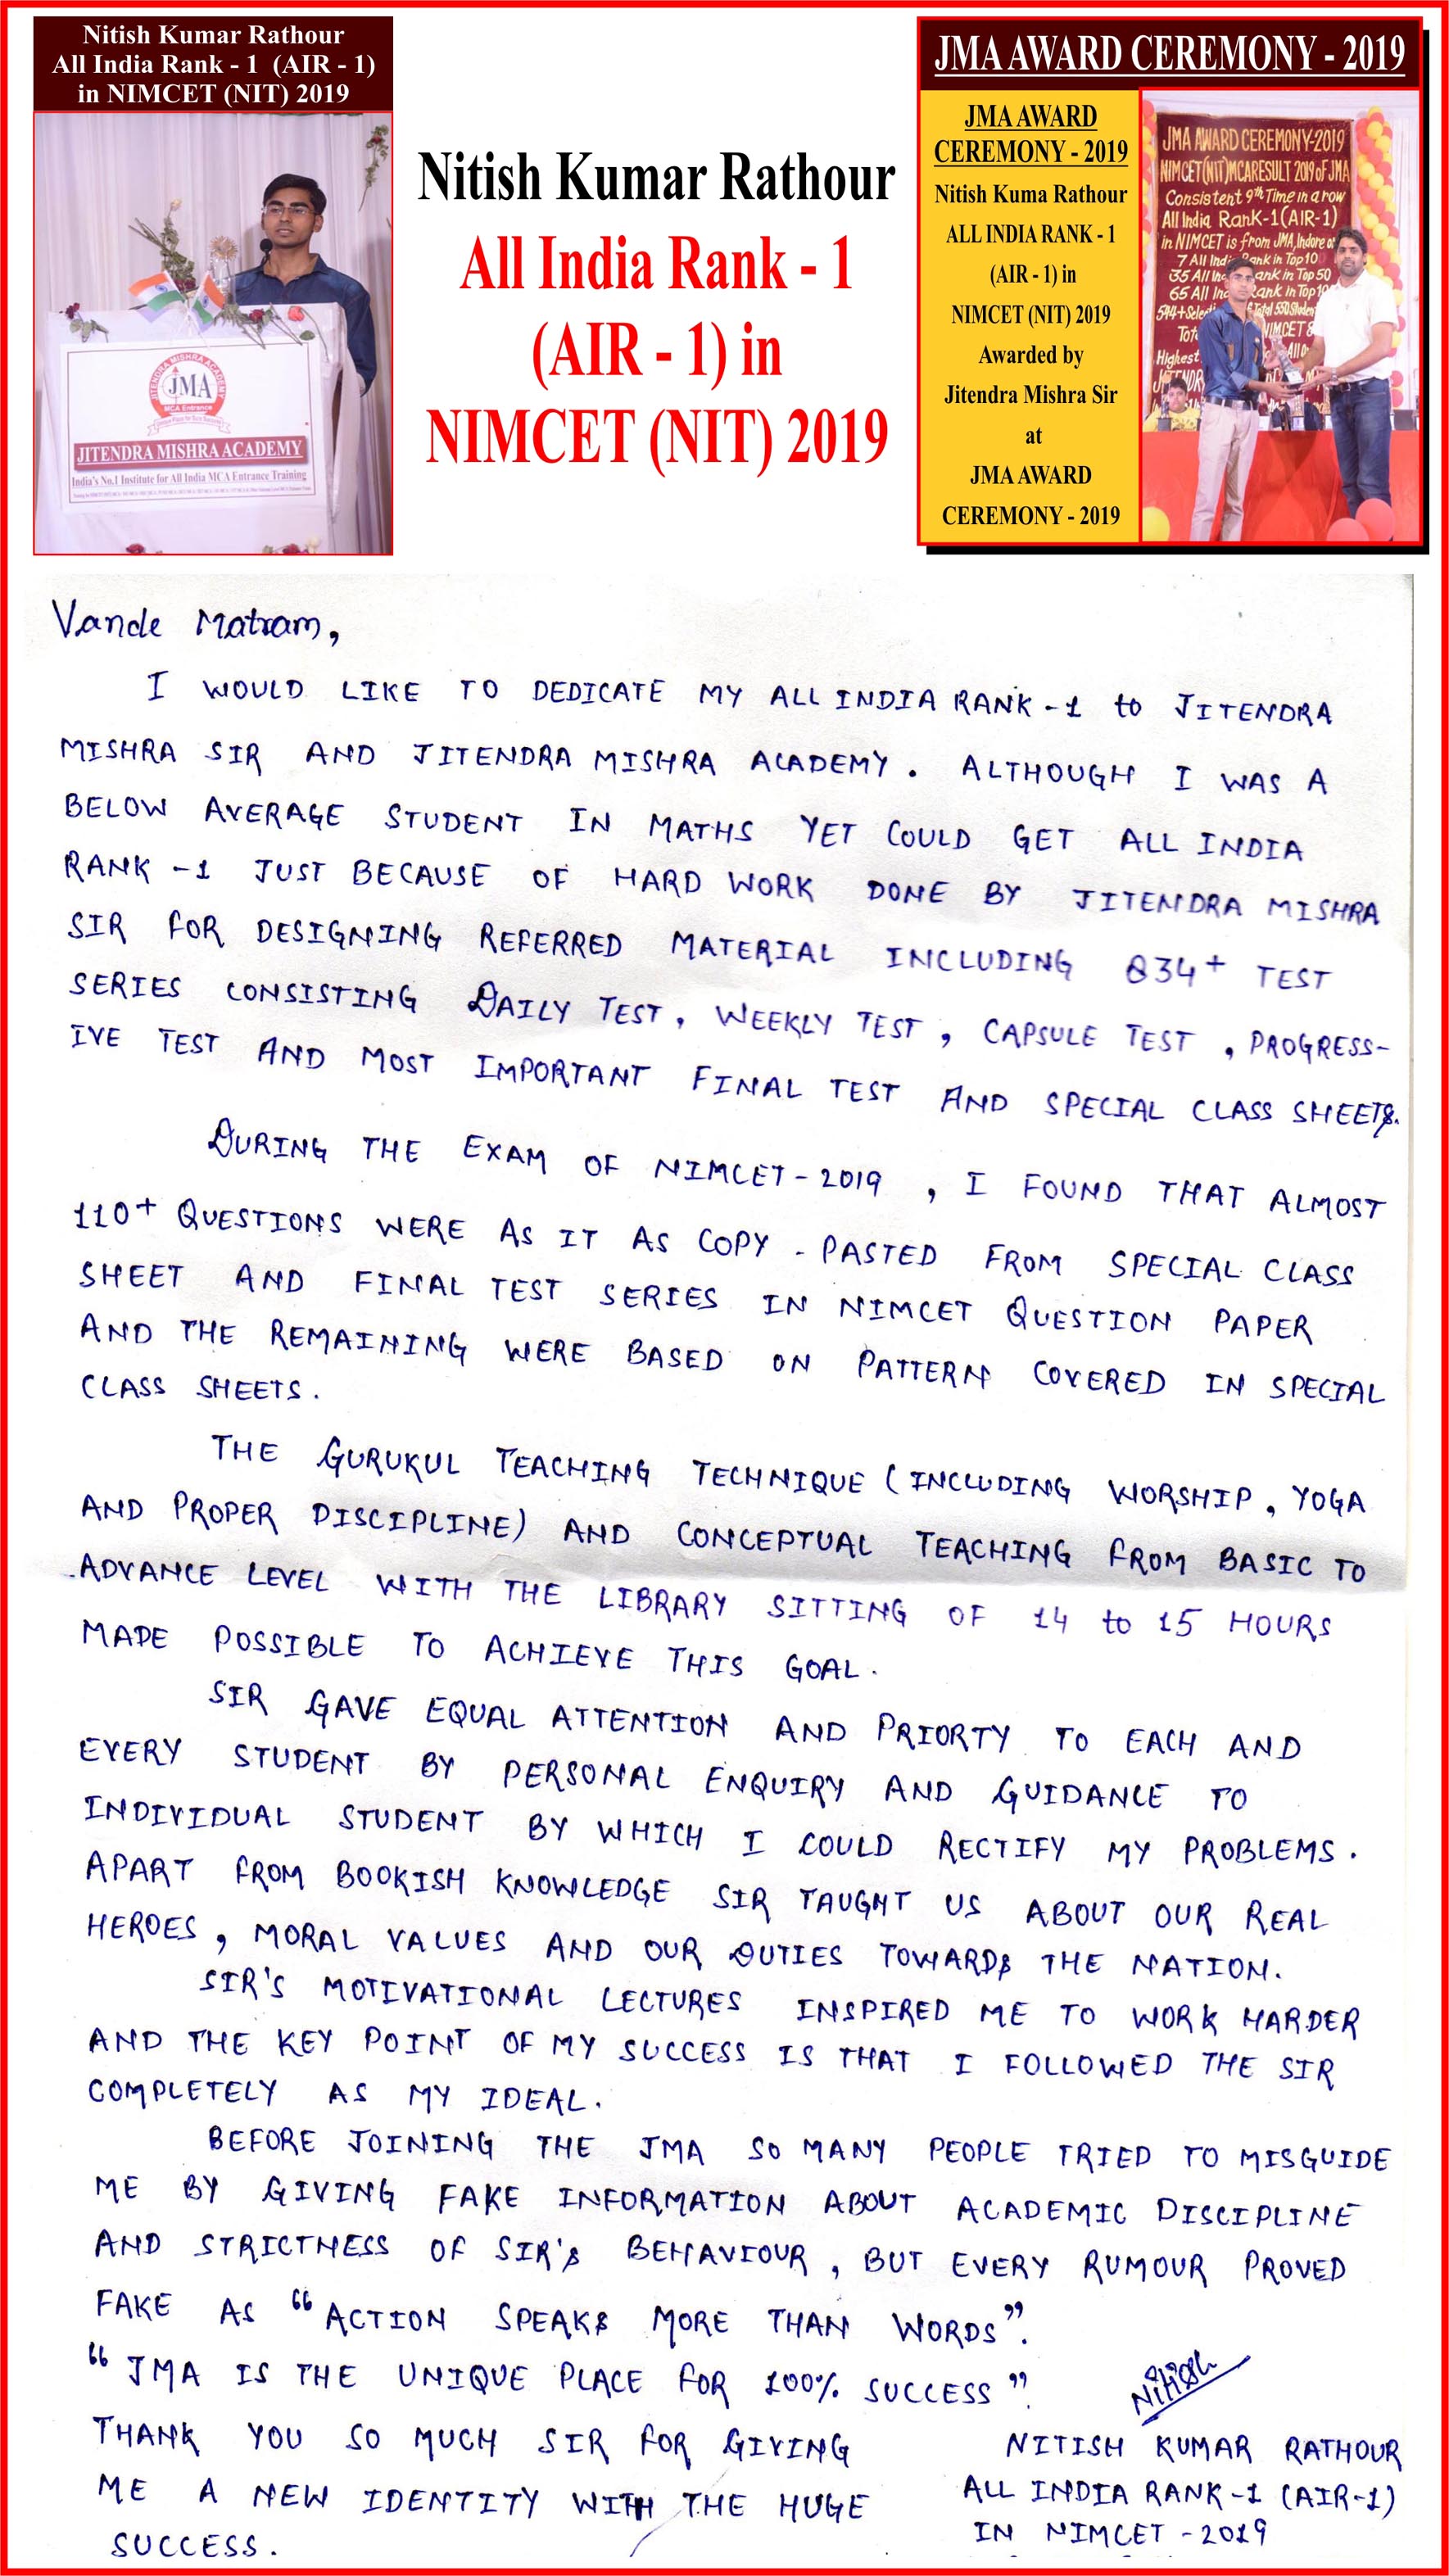 Nitish Kumar Rathour
All India Rank - 1 (AIR - 1)
in NIMCET (NIT) 2019
JMA
MCA Entrance
JITENDRA MISHRA ACADEMY
India's No.1 Institute for All India MCA Entrance Training
Nitish Kumar Rathour
All India Rank - 1
(AIR - 1) in
NIMCET (NIT) 2019
JMA AWARD CEREMONY - 2019
JMA AWARD
CEREMONY - 2019
Nitish Kuma Rathour
ALL INDIA RANK - 1
(AIR - 1) in
NIMCET (NIT) 2019
Awarded by
Jitendra Mishra Sir
at
JMA AWARD
CEREMONY - 2019
JMA AWARD CEREMONY-2019
NIMCET(NIT)MCARESULT 2019 OF JMA
Consistent 9th Time in a row
All India Rank-1(AIR-1)
in NIMCET is from JMA, Indore
7 All Rank in Top 10
35 All Rank in Top 50
65 All Rank in
NIMCET
Highest
Vande Matram,
I WOULD LIKE TO DEDICATE MY ALL INDIA RANK -1 to JITENDRA
MISHRA SIR AND JITENDRA MISHRA ACADEMY. ALTHOUGH I WAS A
BELOW AVERAGE STUDENT IN MATHS YET COULD GET ALL INDIA
RANK -1 JUST BECAUSE OF HARD WORK DONE BY JITENDRA MISHRA
SIR FOR DESIGNING REFERRED MATERIAL INCLUDING 834+ TEST
SERIES CONSISTING DAILY TEST, WEEKLY TEST, CAPSULE TEST, PROGRESS-
IVE TEST AND MOST IMPORTANT FINAL TEST AND SPECIAL CLASS SHEETS.
DURING THE EXAM OF NIMCET - 2019, I FOUND THAT ALMOST
110+ QUESTIONS WERE AS IT AS COPY - PASTED FROM SPECIAL CLASS
SHEET AND FINAL TEST SERIES IN NIMCET QUESTION PAPER
AND THE REMAINING WERE BASED ON PATTERN COVERED IN SPECIAL
CLASS SHEETS.
THE GURUKUL TEACHING TECHNIQUE (INCLUDING WORSHIP, YOGA
AND PROPER DISCIPLINE) AND CONCEPTUAL TEACHING FROM BASIC TO
ADVANCE LEVEL WITH THE LIBRARY SITTING OF 14 to 15 HOURS
MADE POSSIBLE TO ACHIEVE THIS GOAL.
SIR GAVE EQUAL ATTENTION AND PRIORTY TO EACH AND
EVERY STUDENT BY PERSONAL ENQUIRY AND GUIDANCE TO
INDIVIDUAL STUDENT BY WHICH I COULD RECTIFY MY PROBLEMS.
APART FROM BOOKISH KNOWLEDGE SIR TAUGHT US ABOUT OUR REAL
HEROES, MORAL VALUES AND OUR DUTIES TOWARDS THE NATION.
SIR'S MOTIVATIONAL LECTURES INSPIRED ME TO WORK HARDER
AND THE KEY POINT OF MY SUCCESS IS THAT I FOLLOWED THE SIR
COMPLETELY AS MY IDEAL.
BEFORE JOINING THE JMA SO MANY PEOPLE TRIED TO MISGUIDE
ME BY GIVING FAKE INFORMATION ABOUT ACADEMIC DISCIPLINE
AND STRICTNESS OF SIR'S BEHAVIOUR, BUT EVERY RUMOUR PROVED
FAKE AS "ACTION SPEAKS MORE THAN WORDS".
"JMA IS THE UNIQUE PLACE FOR 100% SUCCESS".
THANK YOU SO MUCH SIR FOR GIVING
ME A NEW IDENTITY WITH THE HUGE
SUCCESS.
Nitish
NITISH KUMAR RATHOUR
ALL INDIA RANK -1 (AIR-1)
IN NIMCET - 2019